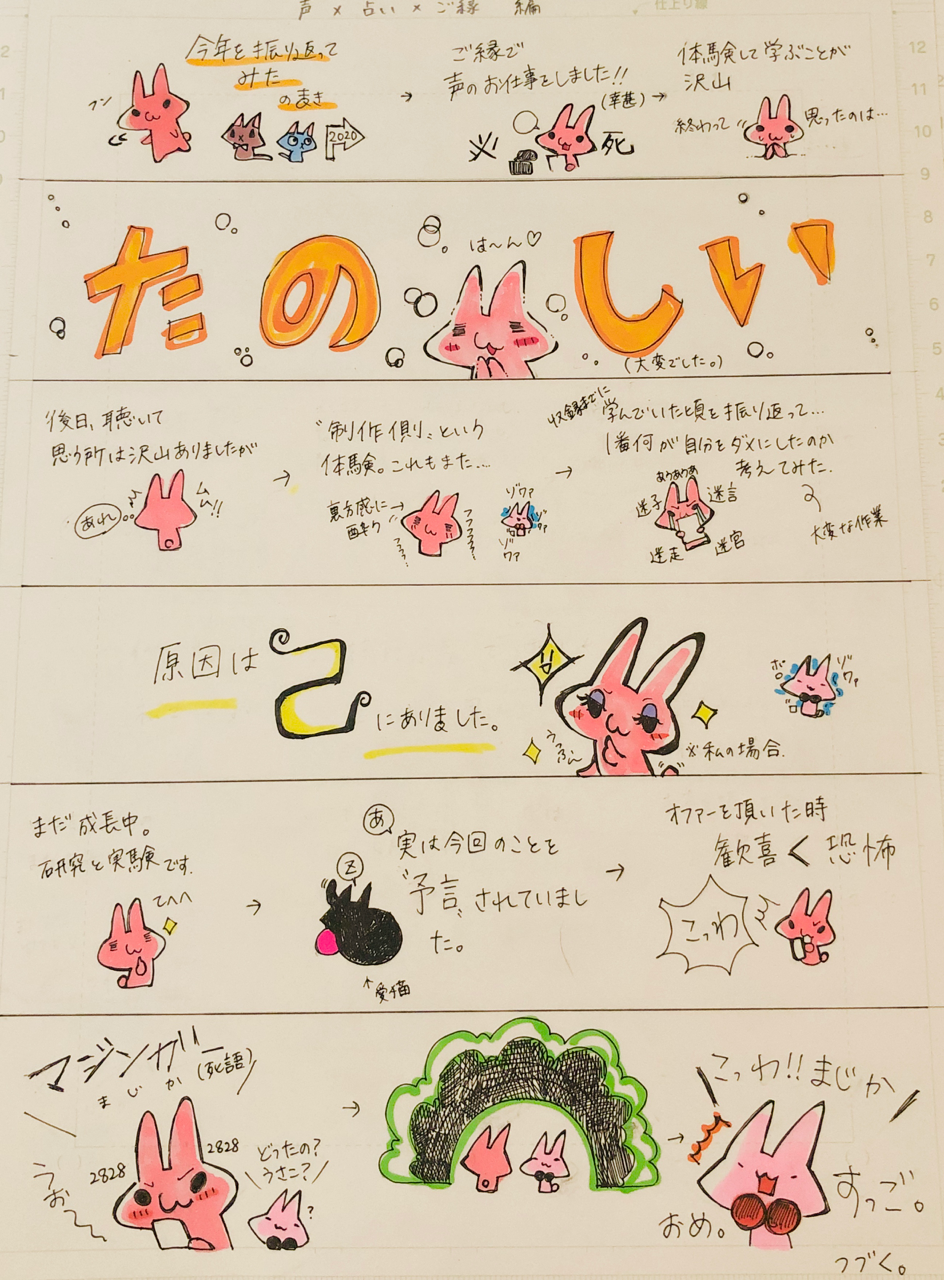 声×占い×ご縁 編
仕上り線
フン
今年を振り返って
みた
のまき
2020
→
ご縁で
声のお仕事をしました!!
(幸甚)
必
死
→
体験して学ぶことが
沢山
終わって
思ったのは…
たのしい
は〜ん♡
(大変でした。)
後日、聴いて
思う所は沢山ありましたが
あれ
ムム!!
→
〝制作側〟という
体験。これもまた…
裏方感に
酔う
フフフフ…
フフフ…
ゾワァ
ゾワァ
ゾワァ
→
収録までに
学んでいた頃を振り返って…
1番何が自分をダメにしたのか
考えてみた.
ありありあ
迷子
迷言
迷走
迷宮
大変な作業
原因は己にありました。
うっふん
※私の場合.
ゾワァ
まだ成長中。
研究と実験です.
てへへ
→
あ
実は今回のことを
〝予言〟されていまし
た。
z
愛猫
→
オファーを頂いた時
歓喜<恐怖
こっわ
マジンガー
(死語)
まじか
うお〜
2828
2828
どったの?
うさこ?
?
→
→
こっわ!!まじか
すっご。
おめ。
つづく。
12
11
10
9
8
7
6
5
4
3